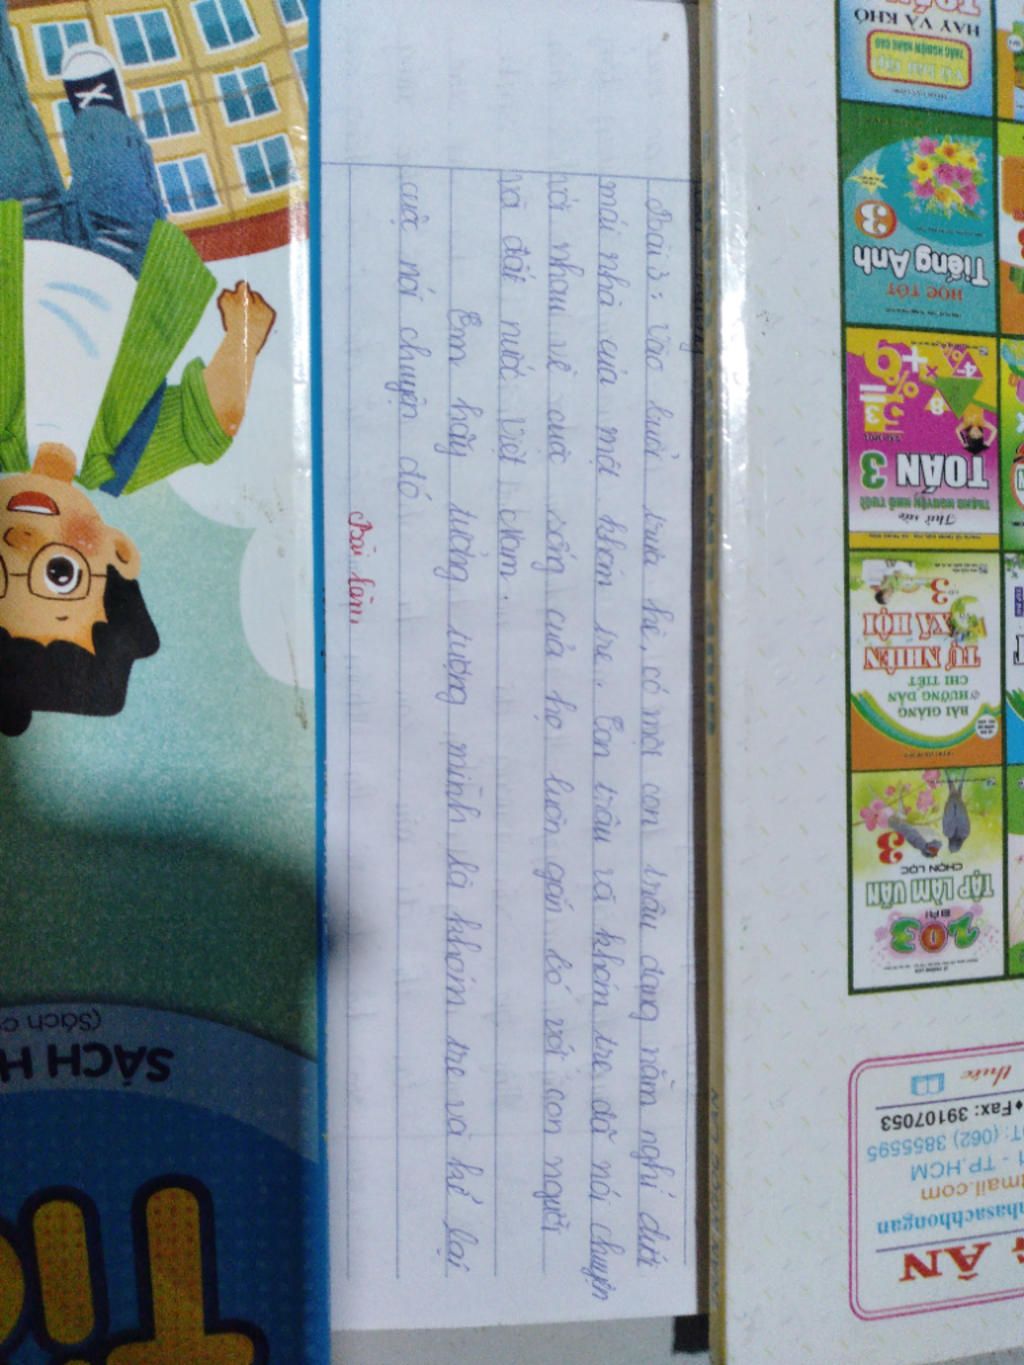 Bài 3: Vào buổi trưa hè, có một con trâu đang nằm nghỉ dưới
mái nhà của một khóm tre. Con trâu và khóm tre đã nói chuyện
với nhau về cuộc sống của họ luôn gắn bó với con người
và đất nước Việt Nam.
Em hãy tưởng tượng mình là khóm tre và kể lại
cuộc nói chuyện đó
Bài làm
HAY VÀ KHÓ
HỌC TỐT
Tiếng Anh
3
Thử sức
TRẠNG NGUYÊN NHỎ TUỔI
TOÁN 3
BÀI GIẢNG
& HƯỚNG DẪN
CHI TIẾT
TỰ NHIÊN
XÃ HỘI
3
203
BÀI
TẬP LÀM VĂN
CHỌN LỌC
3
ÂN
nhasachhongan
mail.com
1 - TP.HCM
ĐT: (062) 3855595
Fax: 39107053
thức
SÁCH H
(Sách c
Ti